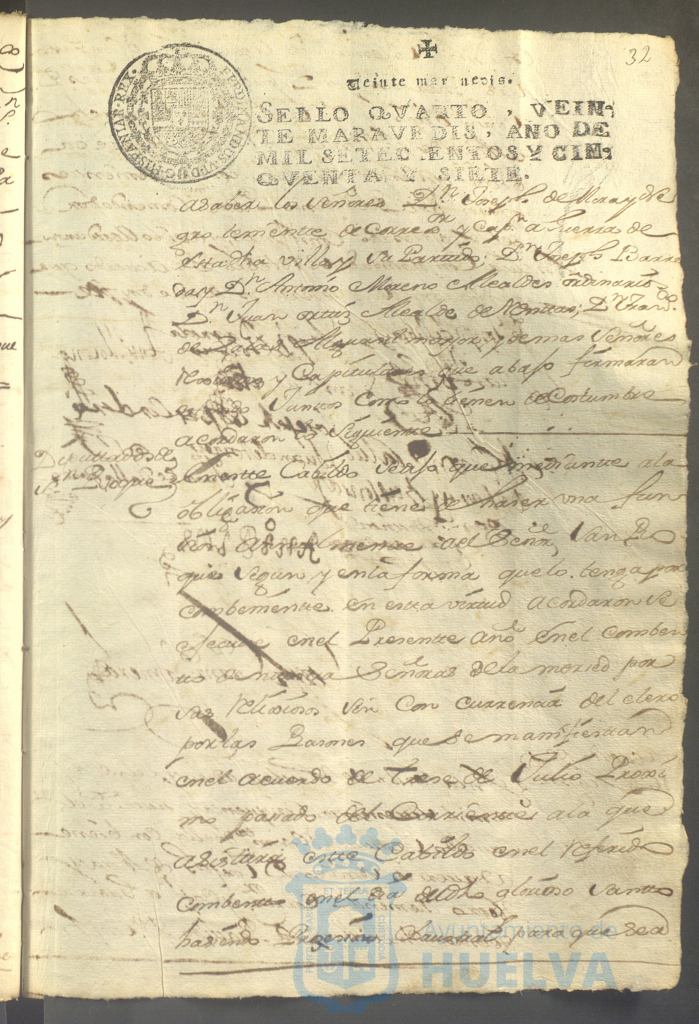 32
Veinte mar nevis.
SELLO QVARTO, VEIN-
TE MARAVEDIS, AÑO DE
MIL SETECIENTOS Y CIN-
QVENTA Y SIETE.
HISPANIAR. REX
asaber los señores Dn. Joseph de Mora y Ne
gro temiente de Correxor. y Capn. a Guerra de
esta dha villa y su Partido; Dn. Joseph Barre
da y Dn. Antonio Moreno Alcaldes ordinarios
Dn. Juan ortiz Alcalde de Dn. Fran.
de Alguasil mayor, y demas señores
y Capitulares que abajo firmaran
Juntos como lo tienen de costumbre
acordaron lo siguiente
Diputados de
Sn. Roque
este Cabildo que mediante a la
obligazion que tiene de haser una fun
zion anualmente al Señor San Ro
que segun y en la forma que lo tenga por
combeniente en esta virtud acordaron se
execute en el Presente año en el Comben
to de nuestra Señora de la merced por
sus Relixiosos sin Concurrencia del clero
por las Rasones que se manifiestan
en el acuerdo de trese de Julio Proxi
mo pasado del Corriente a la que
asistira este Cabildo en el referido
Combento en el dia de dho glorioso santo
haviendo para que sea
Ayuntamiento de
HUELVA